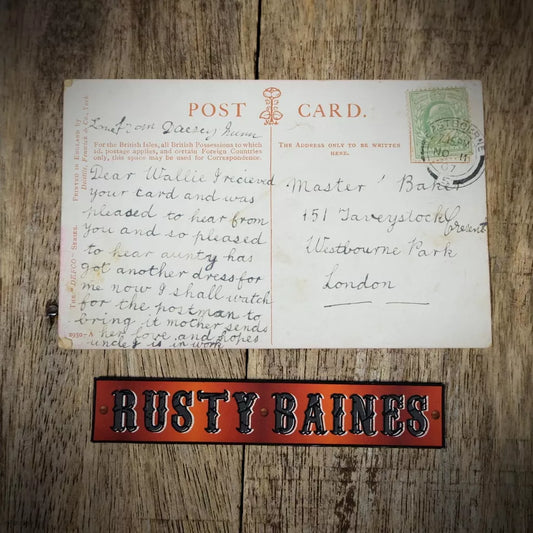 POST CARD.
Love from Daesey Nunn
For the British Isles, all British Possessions to which
½d. postage applies, and certain Foreign Countries
only, this space may be used for Correspondence.
THE ADDRESS ONLY TO BE WRITTEN
HERE.
Dear Wallie I recieved
your card and was
pleased to hear from
you and so pleased
to hear aunty has
got another dress for
me now I shall watch
for the postman to
bring it mother sends
her love and hopes
uncle is in work
Master Baker
151 Taveystock Cresent
Westbourne Park
London
PRINTED IN ENGLAND BY
THE "DEFCO" SERIES.
2950-A
07
RUSTY BAINES